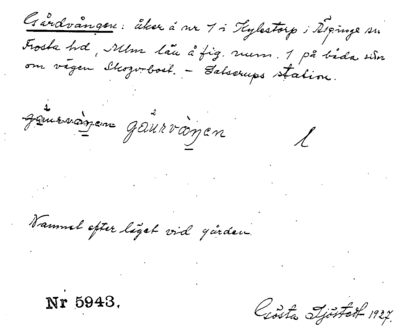 Gårdvången: åker å nr 1 i Hylestorp i Äspinge sn
Frosta hd, Mlm län å fig. num. 1 på båda sidor
om vägen Skogsbost. – Satserups station.
gåurväŋen gåurväŋen 1
Namnet efter läget vid gården
Nr 5943.
Gösta Sjöstedt 1927.